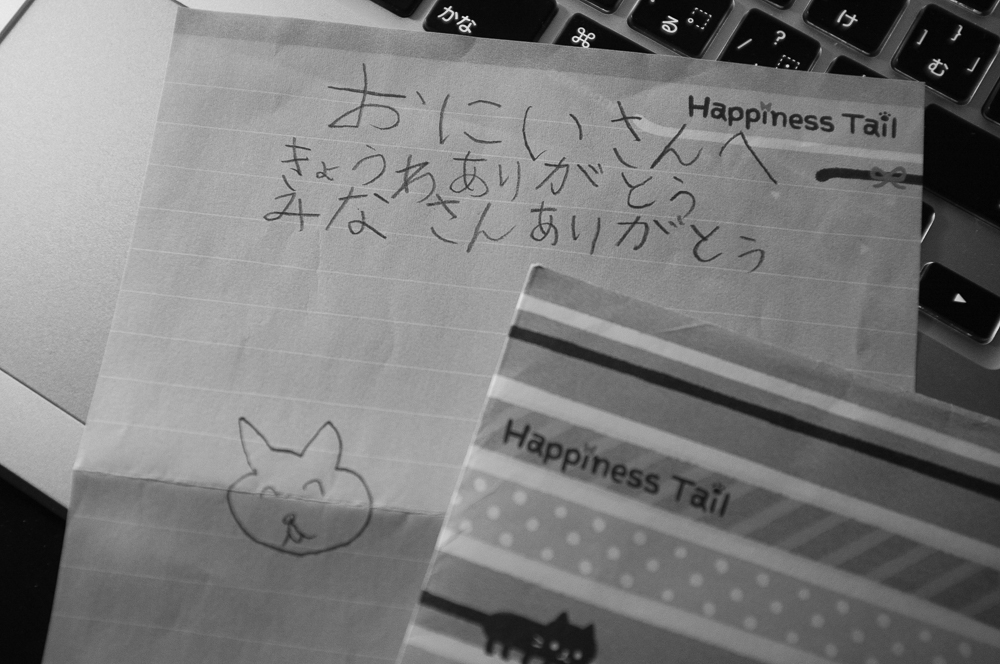 かな
⌘
る
? / ・
け
} ] 」 む
Happiness Tail
おにいさんへ
きょうわありがとう
みなさんありがとう
Happiness Tail